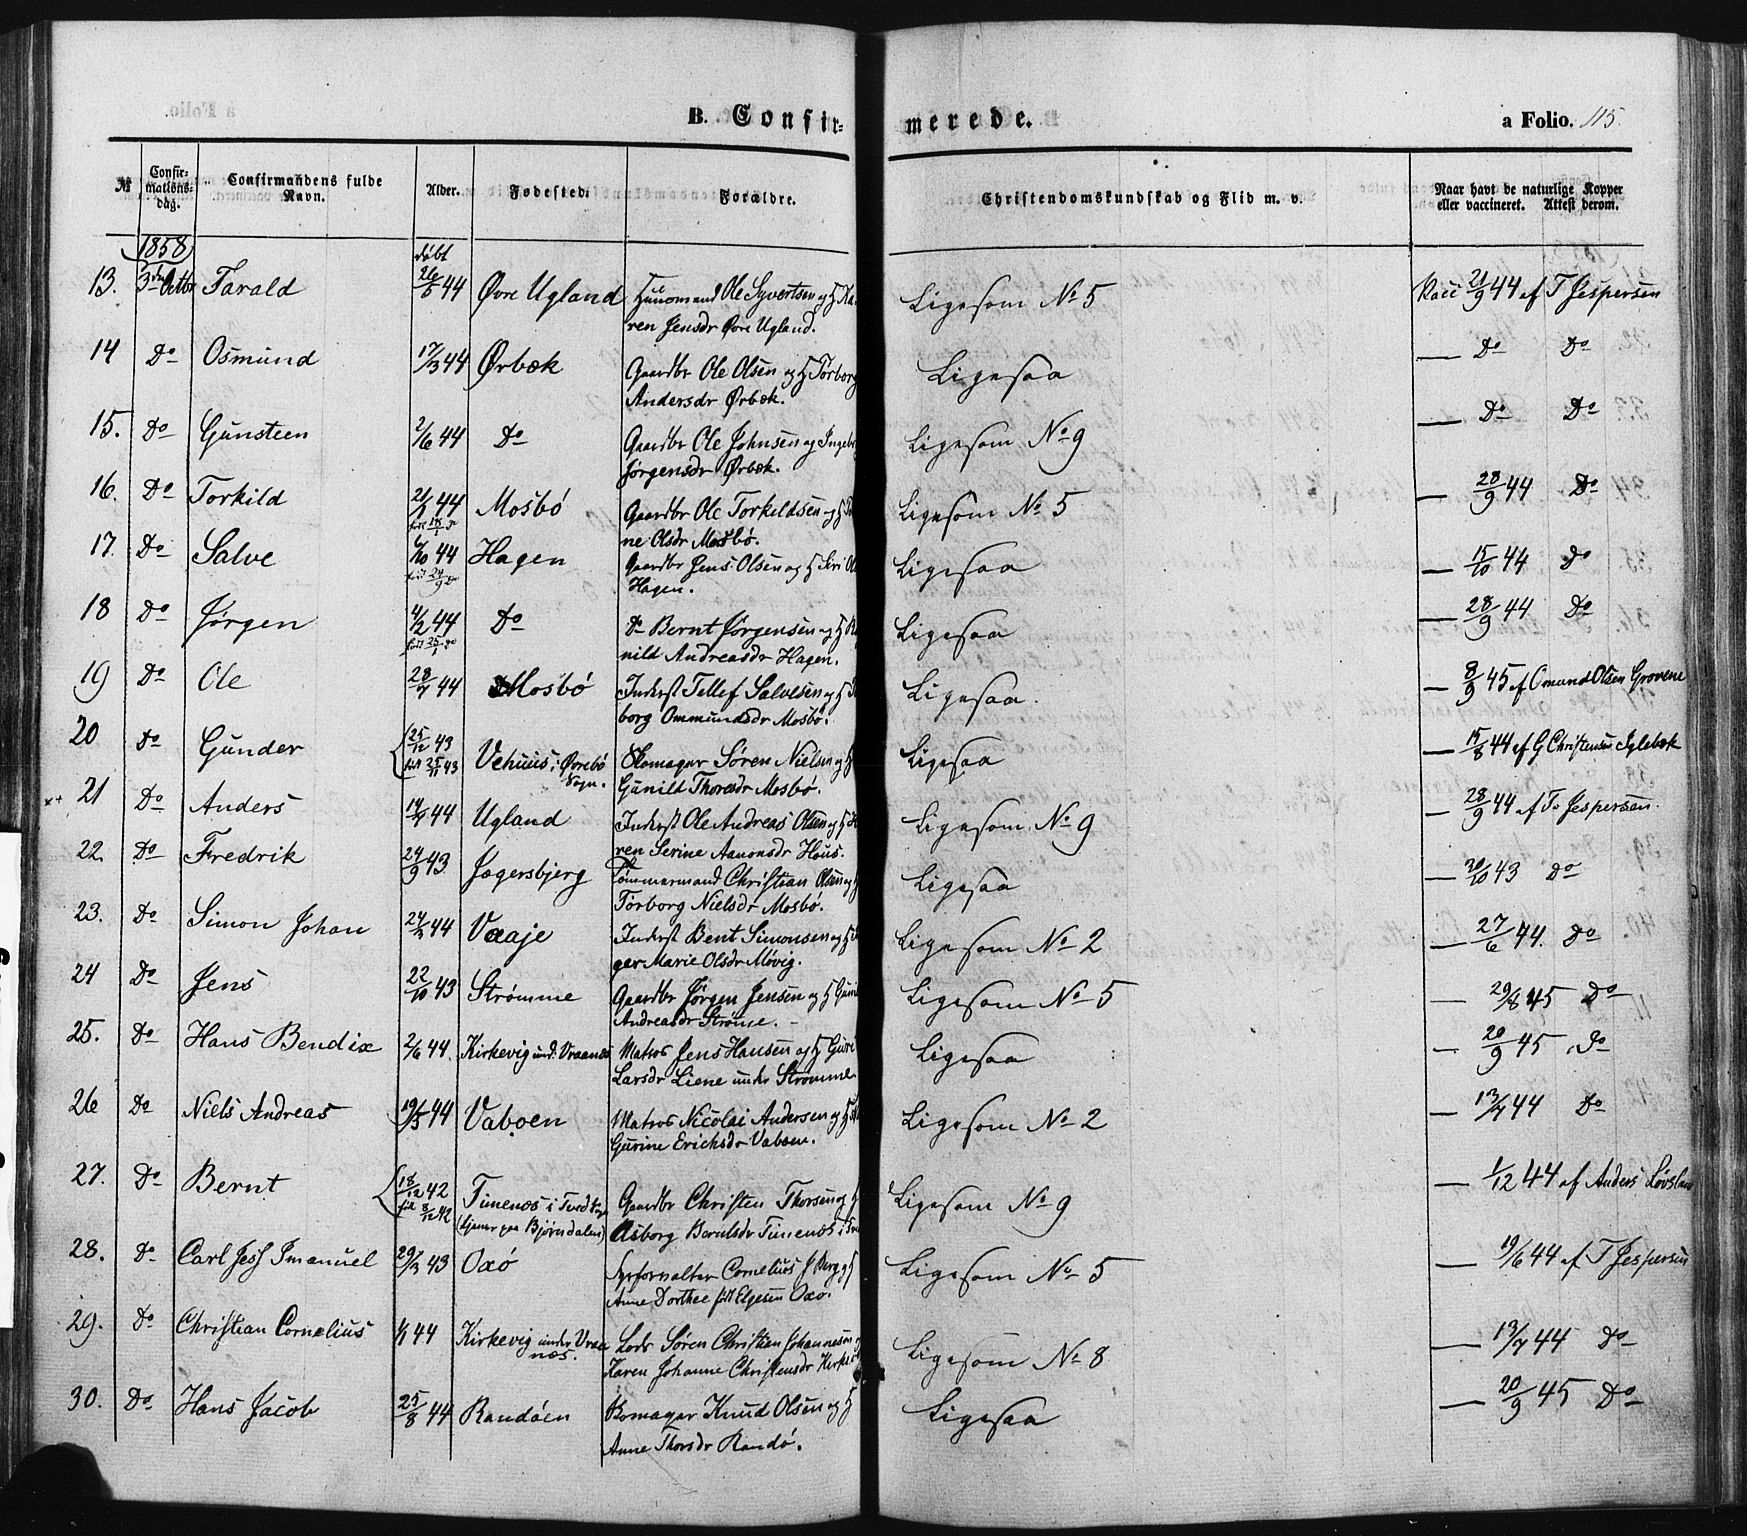 B. Confir-
merede.
a Folio. 115.
№
Confir-
mations-
dag.
Confirmandens fulde
Navn.
Alder.
Fødested.
Forældre.
Christendomskundskab og Flid m. v.
Naar havt de naturlige Kopper
eller vaccineret. Attest derom.
1858
døbt
13. 3die Octbr Tarald 26/5 44 Øvre Ugland Huusmand Ole Syvertsen og H Ka-
ren Jensdr Øvre Ugland.
Ligesom No 5
Vacc 21/9 44 af T Jespersen
14 Do Osmund 17/3 44 Ørbæk Gaardbr Ole Olsen og H Torborg
Andersdr Ørbæk.
Ligesaa
— Do Do
15. Do Gunsteen 2/6 44 Do Gaardbr Ole Johnsen og Ingeb
Jørgensdr Ørbæk.
Ligesom No 9
— Do Do
16. Do Torkild 21/1 44 Mosbø Gaardbr Ole Torkildsen og H
ne Olsdr Mosbø.
Ligesom No 5
— 28/9 44 Do
17. Do Salve 6/10 44 Hagen Gaardbr Jens Olsen og H Siri Ol
født 24/9 Do
Hagen.
Ligesaa
— 15/10 44 Do
18 Do Jørgen 4/2 44 Do Do Bernt Jørgensen og H
nild Andreasdr Hagen.
Ligesaa
— 28/9 44 Do
19 Do Ole 28/7 44 Mosbø Inderst Tellef Salvesen og H
borg Ommundsdr Mosbø.
Ligesaa.
— 8/9 45 af Omund Olsen Grovene
20 Do Gunder 25/12 43 Vehuus i Øvrebø
født 25/11 43
Sogn.
Skomager Søren Nielsen og H
Gunild Thoresdr Mosbø.
Ligesaa
— 15/8 44 af G Christensen Iglebæk
21 Do Anders 14/4 44 Ugland Inderst Ole Andreas Olsen og H
ren Serine Aanonsdr Hous.
Ligesom No 9
— 28/9 44 af T. Jespersen.
22. Do Fredrik 24/9 43 Jægersbjerg Tømmermand Christian Olsen og H
Torborg Nielsdr Mosbø.
Ligesaa
— 30/10 43 Do
23. Do Simon Johan 24/3 44 Vaaje Inderst Bent Simonsen og H
ger Marie Olsdr Møvig.
Ligesom No 2
— 27/6 44. Do
24 Do Jens 22/10 43 Strømme Gaardbr Jørgen Jensen og H Guni
Andreasdr Strømme.
Ligesom No 5
— 29/8 45 Do
25. Do Hans Bendix 2/6 44. Kirkevig und: Vraanes Matros Jens Hansen og H Guri
Larsdr Liene under Strømme
Ligesaa
— 20/9 45 Do
26 Do Niels Andreas 19/5 44 Vaboen Matros Nicolai Andersen og H
Gurine Erichsdr Vaboen.
Ligesom No 2
— 13/7 44 Do
27. Do Bernt 18/12 42 Timenes i Tved
født 8/12 42
(tjener paa Bjørndalen)
Gaardbr Christen Thorsen og H
Asborg Berntsdr Timenes i
Ligesom No 9
— 1/12 44 af Anders Løvsland
28. Do Carl Jess Imanuel 29/3 43 Oxø Fyrforvalter Cornelius J Berg og H
Anne Dorthee født Elgesen Oxø.
Ligesom No 5
— 19/6 44 af T Jespersen
29. Do Christian Cornelius 1/1 44 Kirkevig under Vraa-
nes.
Lods Søren Christian Johannesen
Karen Johanne Christensdr Kirke
Ligesom No 8
— 13/7 44 Do
30. Do Hans Jacob 25/8 44 Randøen Skomager Knud Olsen og H
Anne Thorsdr Randø.
Ligesaa
— 20/9 45 Do